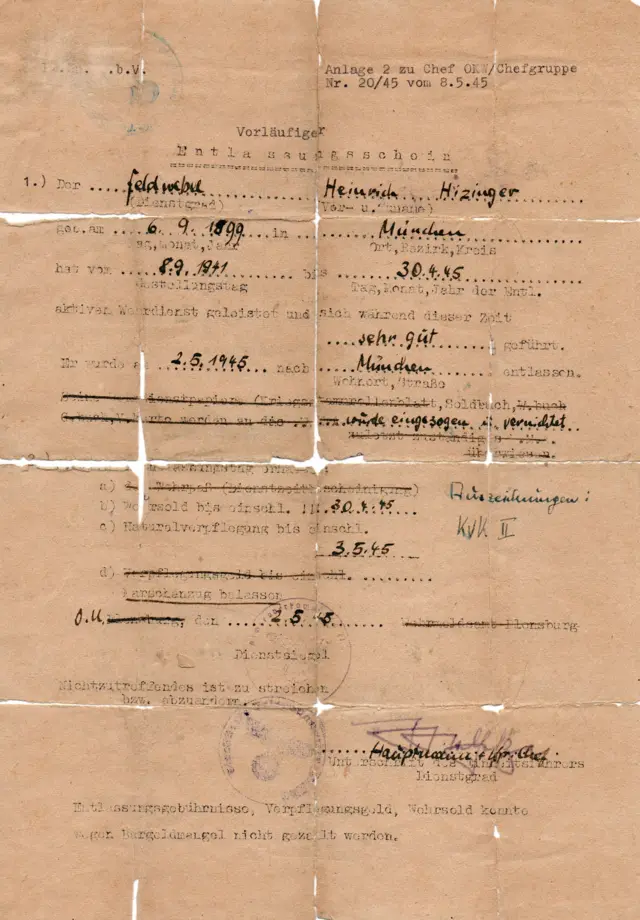 .b.V.
Anlage 2 zu Chef OKW/Chefgruppe
Nr. 20/45 vom 8.5.45
Vorläufiger
Entlassungsschein
1.) Der .... Feldwebel .... Heinrich Hizinger
(Dienstgrad) Vor- u. Zuname)
geb.am .... 6. 9. 1899 .... in .... München
Tag,Monat,Jahr Ort,Bezirk,Kreis
hat vom .... 8.9. 1941 .... bis .... 30.4.45
Gestellungstag Tag,Monat,Jahr der Entl.
aktiven Wehrdienst geleistet und sich während dieser Zeit
.... sehr gut .... geführt.
Er wurde am .. 2.5.1945 ... nach .. München .... entlassen.
Wohnort,Straße
Soldbuch, W.buch
werden an die wurde eingezogen u. vernichtet
überwiesen.
a) Wehrpaß (Dienstzeitbescheinigung)
Auszeichnungen:
b) Wehrsold bis einschl. ... 30.4.45
c) Naturalverpflegung bis einschl.
KVK II
3.5.45
d) Verpflegungsgeld bis einschl. ..........
Marschanzug belassen
O.U. Flensburg, den ...... 2.5.45 Flensburg
Dienstsiegel
Nichtzutreffendes ist zu streichen
bzw. abzuändern.
Hauptmann u.
Unterschrift des Einheitsführers
Dienstgrad
Entlassungsgebührnisse, Verpflegungsgeld, Wehrsold konnte
wegen Bargeldmangel nicht gezahlt werden.